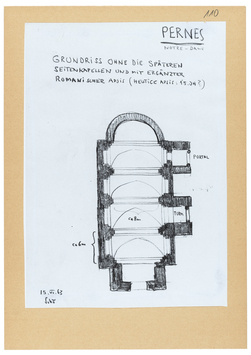 110
PERNES
NOTRE-DAME
GRUNDRISS OHNE DIE SPÄTEREN
SEITENKAPELLEN UND MIT ERGÄNZTER
ROMANISCHER APSIS (HEUTIGE APSIS: 15. JH?)
PORTAL
ca 8m
TURM
ca 6m